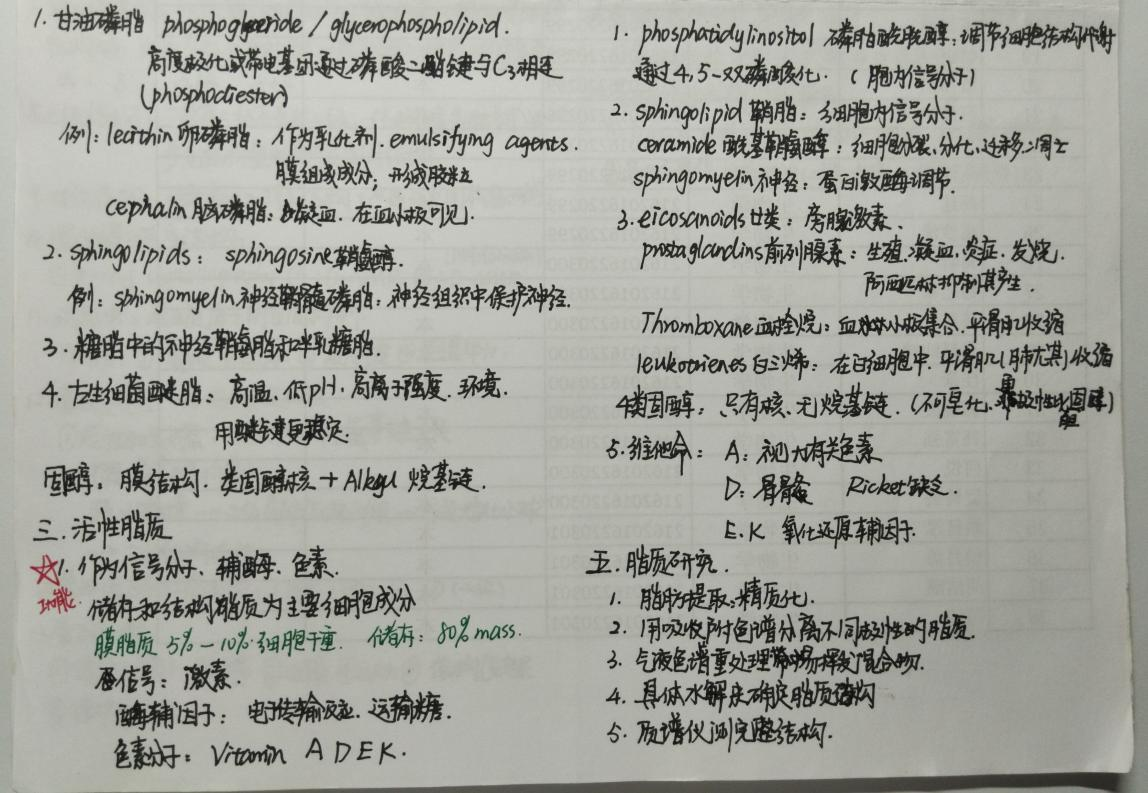 1. 甘油磷脂 phosphoglyceride / glycerophospholipid.
高度极化或带电基团通过磷酸二酯键与C3相连
(phosphodiester)
例: lecithin 卵磷脂: 作为乳化剂. emulsifying agents.
膜组成成分; 形成胶粒
cephalin 脑磷脂: 凝血. 在血小板可见.
2. sphingolipids: sphingosine 鞘氨醇.
例: sphingomyelin 神经鞘髓磷脂: 神经组织中保护神经.
3. 糖脂中的神经鞘氨脂和半乳糖脂.
4. 古生细菌醚脂: 高温、低pH、高离子强度、环境.
用醚键更稳定.
固醇: 膜结构. 类固醇核 + Alkyl 烷基链.
三. 活性脂质
☆1. 作为信号分子、辅酶、色素.
功能.
储存和结构脂质为主要细胞成分
膜脂质 5% — 10% 细胞干重. 储存: 80% mass.
信号: 激素.
酶辅因子: 电子传输反应. 运输糖.
色素分子: Vitamin A D E K.
1. phosphatidylinositol 磷脂酰肌醇: 调节细胞结构代谢
通过4,5-双磷酸化. (胞内信号分子)
2. sphingolipid 鞘脂: 细胞内信号分子.
ceramide 酰基鞘氨醇: 细胞分裂、分化、迁移、凋亡
sphingomyelin 神经: 蛋白激酶调节.
3. eicosanoids 廿类: 旁腺激素.
prostaglandins 前列腺素: 生殖、凝血、炎症、发烧.
阿匹林抑制其产生.
Thromboxane 血栓烷: 血小板集合. 平滑肌收缩
leukotrienes 白三烯: 在白细胞中. 平滑肌(肺尤其)收缩
4类固醇: 只有核、无烷基链. (不可皂化、固醇)
5. 维他命: A: 视力有关色素
D: 骨骼 Ricket 缺乏.
E. K 氧化还原辅因子.
五. 脂质研究.
1. 脂肪提取: 精质化.
2. 用吸收附色谱分离不同极性的脂质.
3. 气液色谱重处理挥发混合物.
4. 具体水解来确定脂质结构
5. 质谱仪测完整结构.